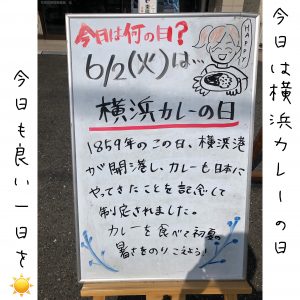 今日は横浜カレーの日
今日は何の日?
HAPPY
6/2(火)は…
横浜カレーの日
1859年のこの日、横浜港
が開港し、カレーも日本に
やってきたことを記念して
制定されました。
カレーを食べて初夏の
暑さをのりこえよう!
今日も良い一日を☀️